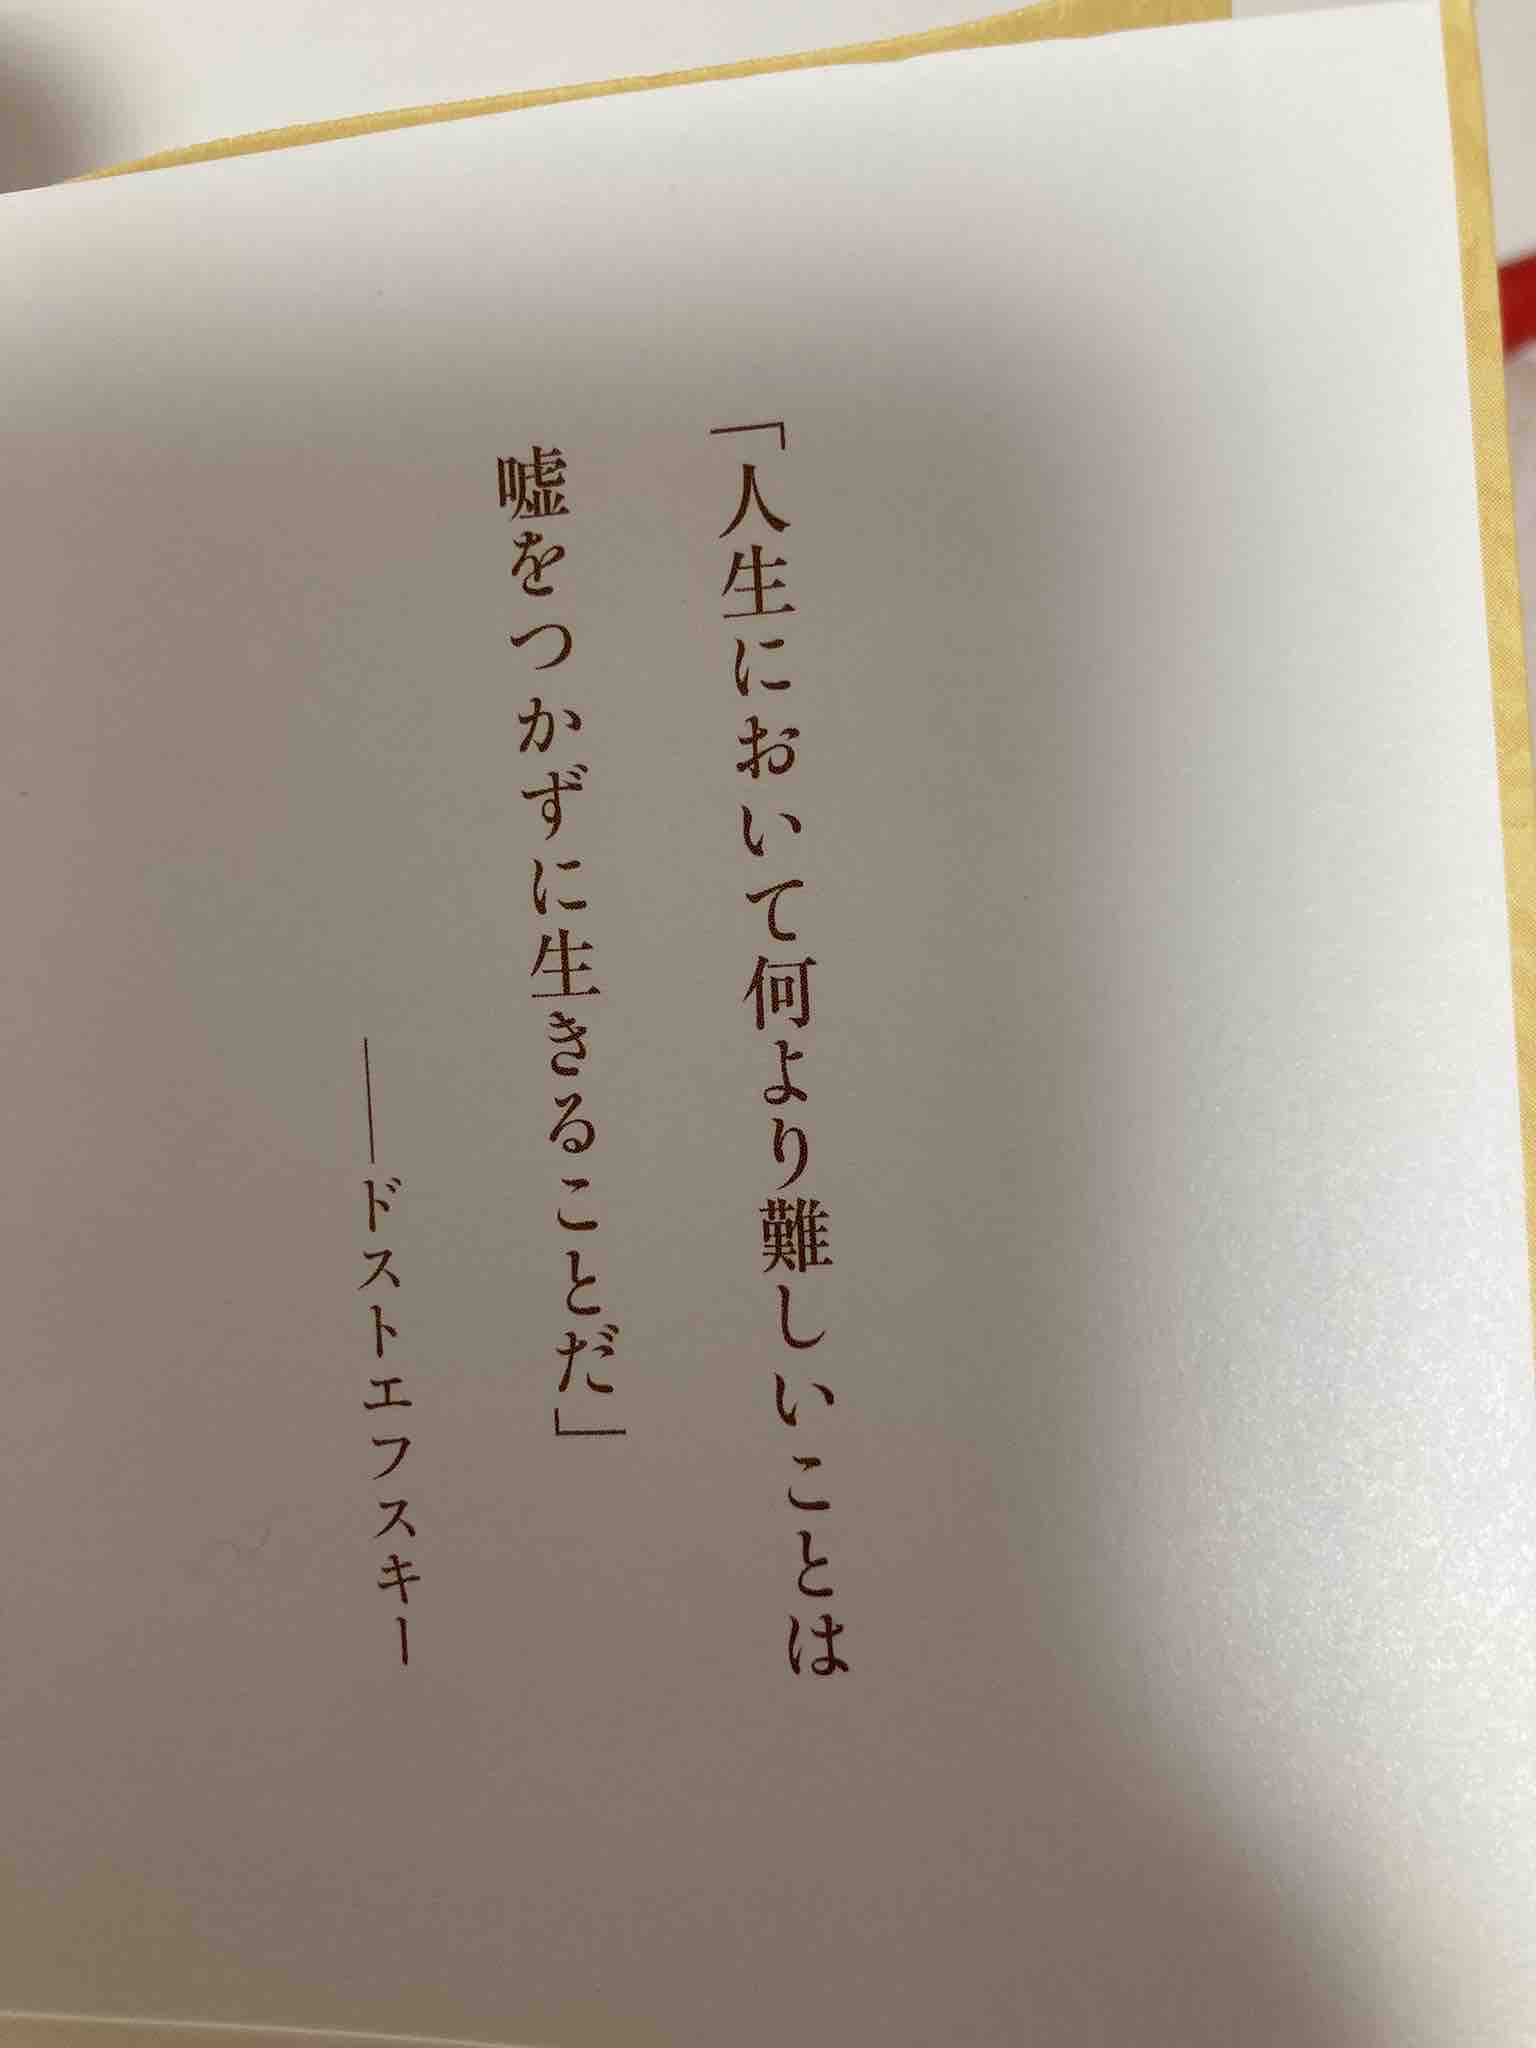 「人生において何より難しいことは
嘘をつかずに生きることだ」
――ドストエフスキー